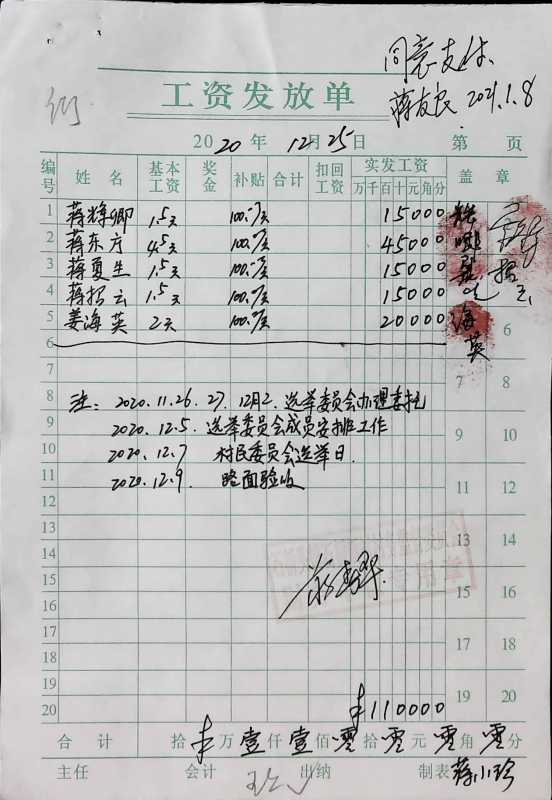 同意支付.
蒋友良 2021.1.8
工资发放单
2020年 12月25日 第 页
编号 姓名 基本工资 奖金 补贴 合计 扣回工资 实发工资 盖章
万千百十元角分
1 蒋 卿 1.5天 100.-/天 15000
2 蒋东方 4.5天 100.-/天 45000
3 蒋夏生 1.5天 100.-/天 15000
4 蒋招云 1.5天 100.-/天 15000
5 姜海英 2天 100.-/天 20000 海英
6 6
7 7 8
8 注: 2020.11.26 27. 12月2. 选举委员会办理委托
9 2020.12.5. 选举委员会成员安排工作 9 10
10 2020.12.7 村民委员会选举日.
11 2020.12.9. 路面验收 11 12
12
13 13 14
14
15 15 16
16
17 17 18
18
19 19 20
20 ¥110000
合计 拾¥万壹仟壹佰零拾零元零角零分
主任 会计 出纳 制表 蒋小珍